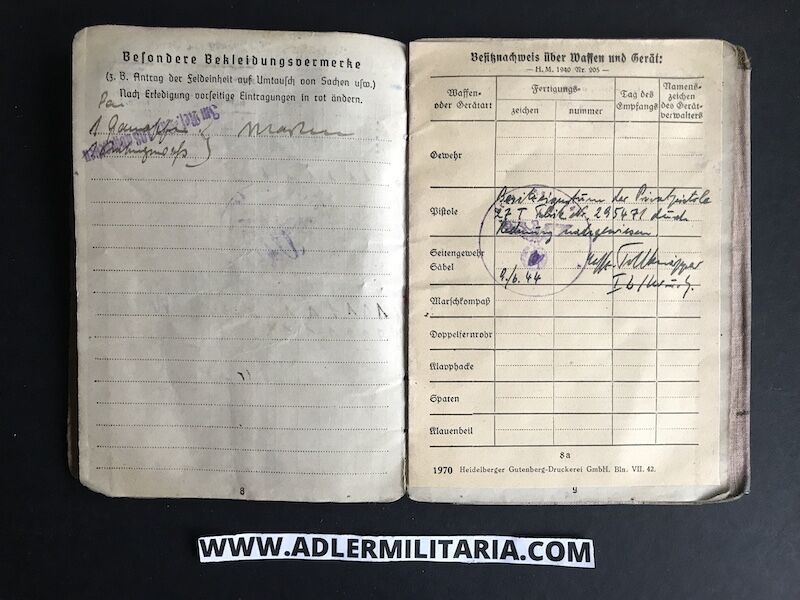 Besondere Bekleidungsvermerke
(z. B. Antrag der Feldeinheit auf Umtausch von Sachen usw.)
Nach Erledigung vorseitige Eintragungen in rot ändern.
1
8
Besitznachweis über Waffen und Gerät:
— H. M. 1940 Nr. 205 —
Waffen- oder Gerätart
Fertigungs-
zeichen
nummer
Tag des Empfangs
Namens- zeichen des Gerät- verwalters
Gewehr
Pistole
der Privatpistole
27 T Fabrik Nr. 295471 durch
Rechnung nachgewiesen
Seitengewehr
Säbel
9./6. 44
Marschkompaß
Doppelfernrohr
Klapphacke
Spaten
Mauerbeil
8a
1970 Heidelberger Gutenberg-Druckerei GmbH. Bln. VII. 42.
9
WWW.ADLERMILITARIA.COM